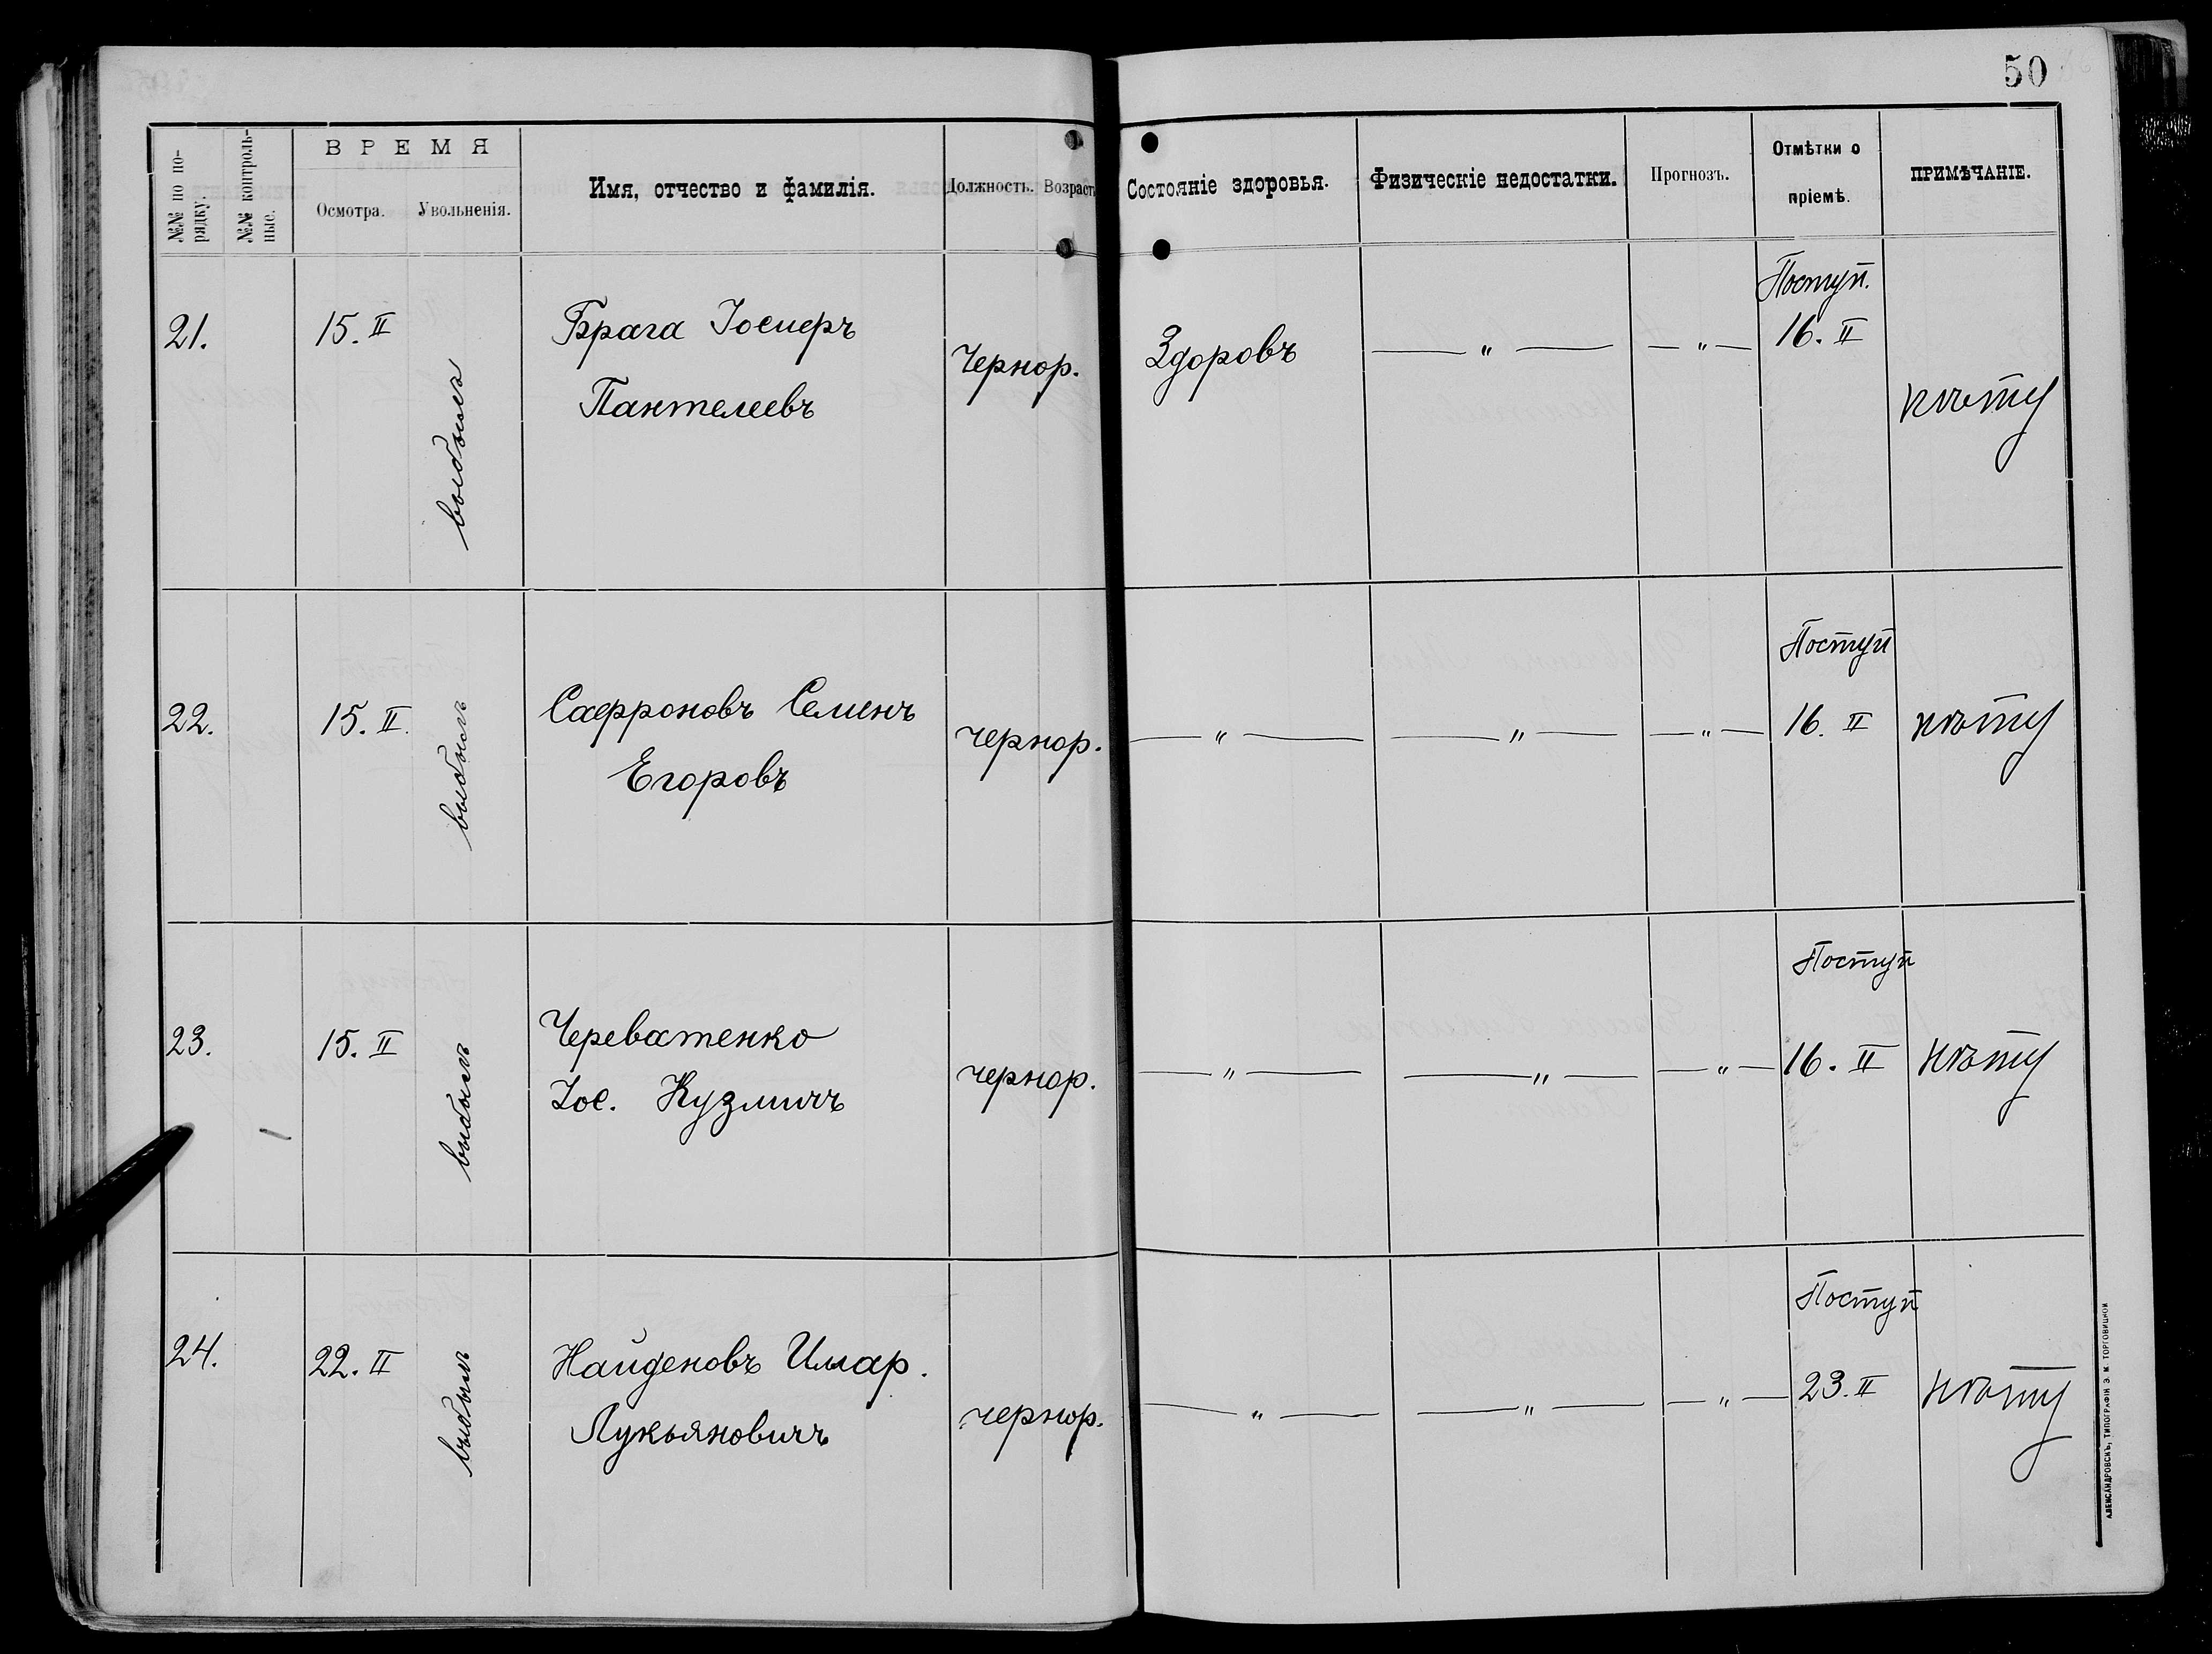 50
№№ по по-
рядку.
№№ контроль-
ные.
ВРЕМЯ
Осмотра.
Увольненія.
Имя, отчество и фамилія.
Должность.
Возраст
Состояніе здоровья.
Физическіе недостатки.
Прогнозъ.
Отмѣтки о
пріемѣ.
ПРИМѢЧАНІЕ.
21.
15. II
выбылъ
Брага Іосифъ
Пантелеевъ
Чернор.
Здоровъ
— " —
— " —
Поступ.
16. II
нѣту
22.
15. II.
выбылъ
Сафроновъ Семенъ
Егоровъ
чернор.
— " —
— " —
— " —
Поступ
16. II
нѣту
23.
15. II
выбылъ
Череватенко
Іос. Кузмичъ
чернор.
— " —
— " —
— " —
Поступ
16. II
нѣту
24.
22. II
выбылъ
Найденовъ Илар.
Лукьяновичъ
чернор.
— " —
— " —
— " —
Поступ
23. II
нѣту
АЛЕКСАНДРОВСКЪ, ТИПОГРАФІЯ Э. М. ТОРГОВИЦКОЙ